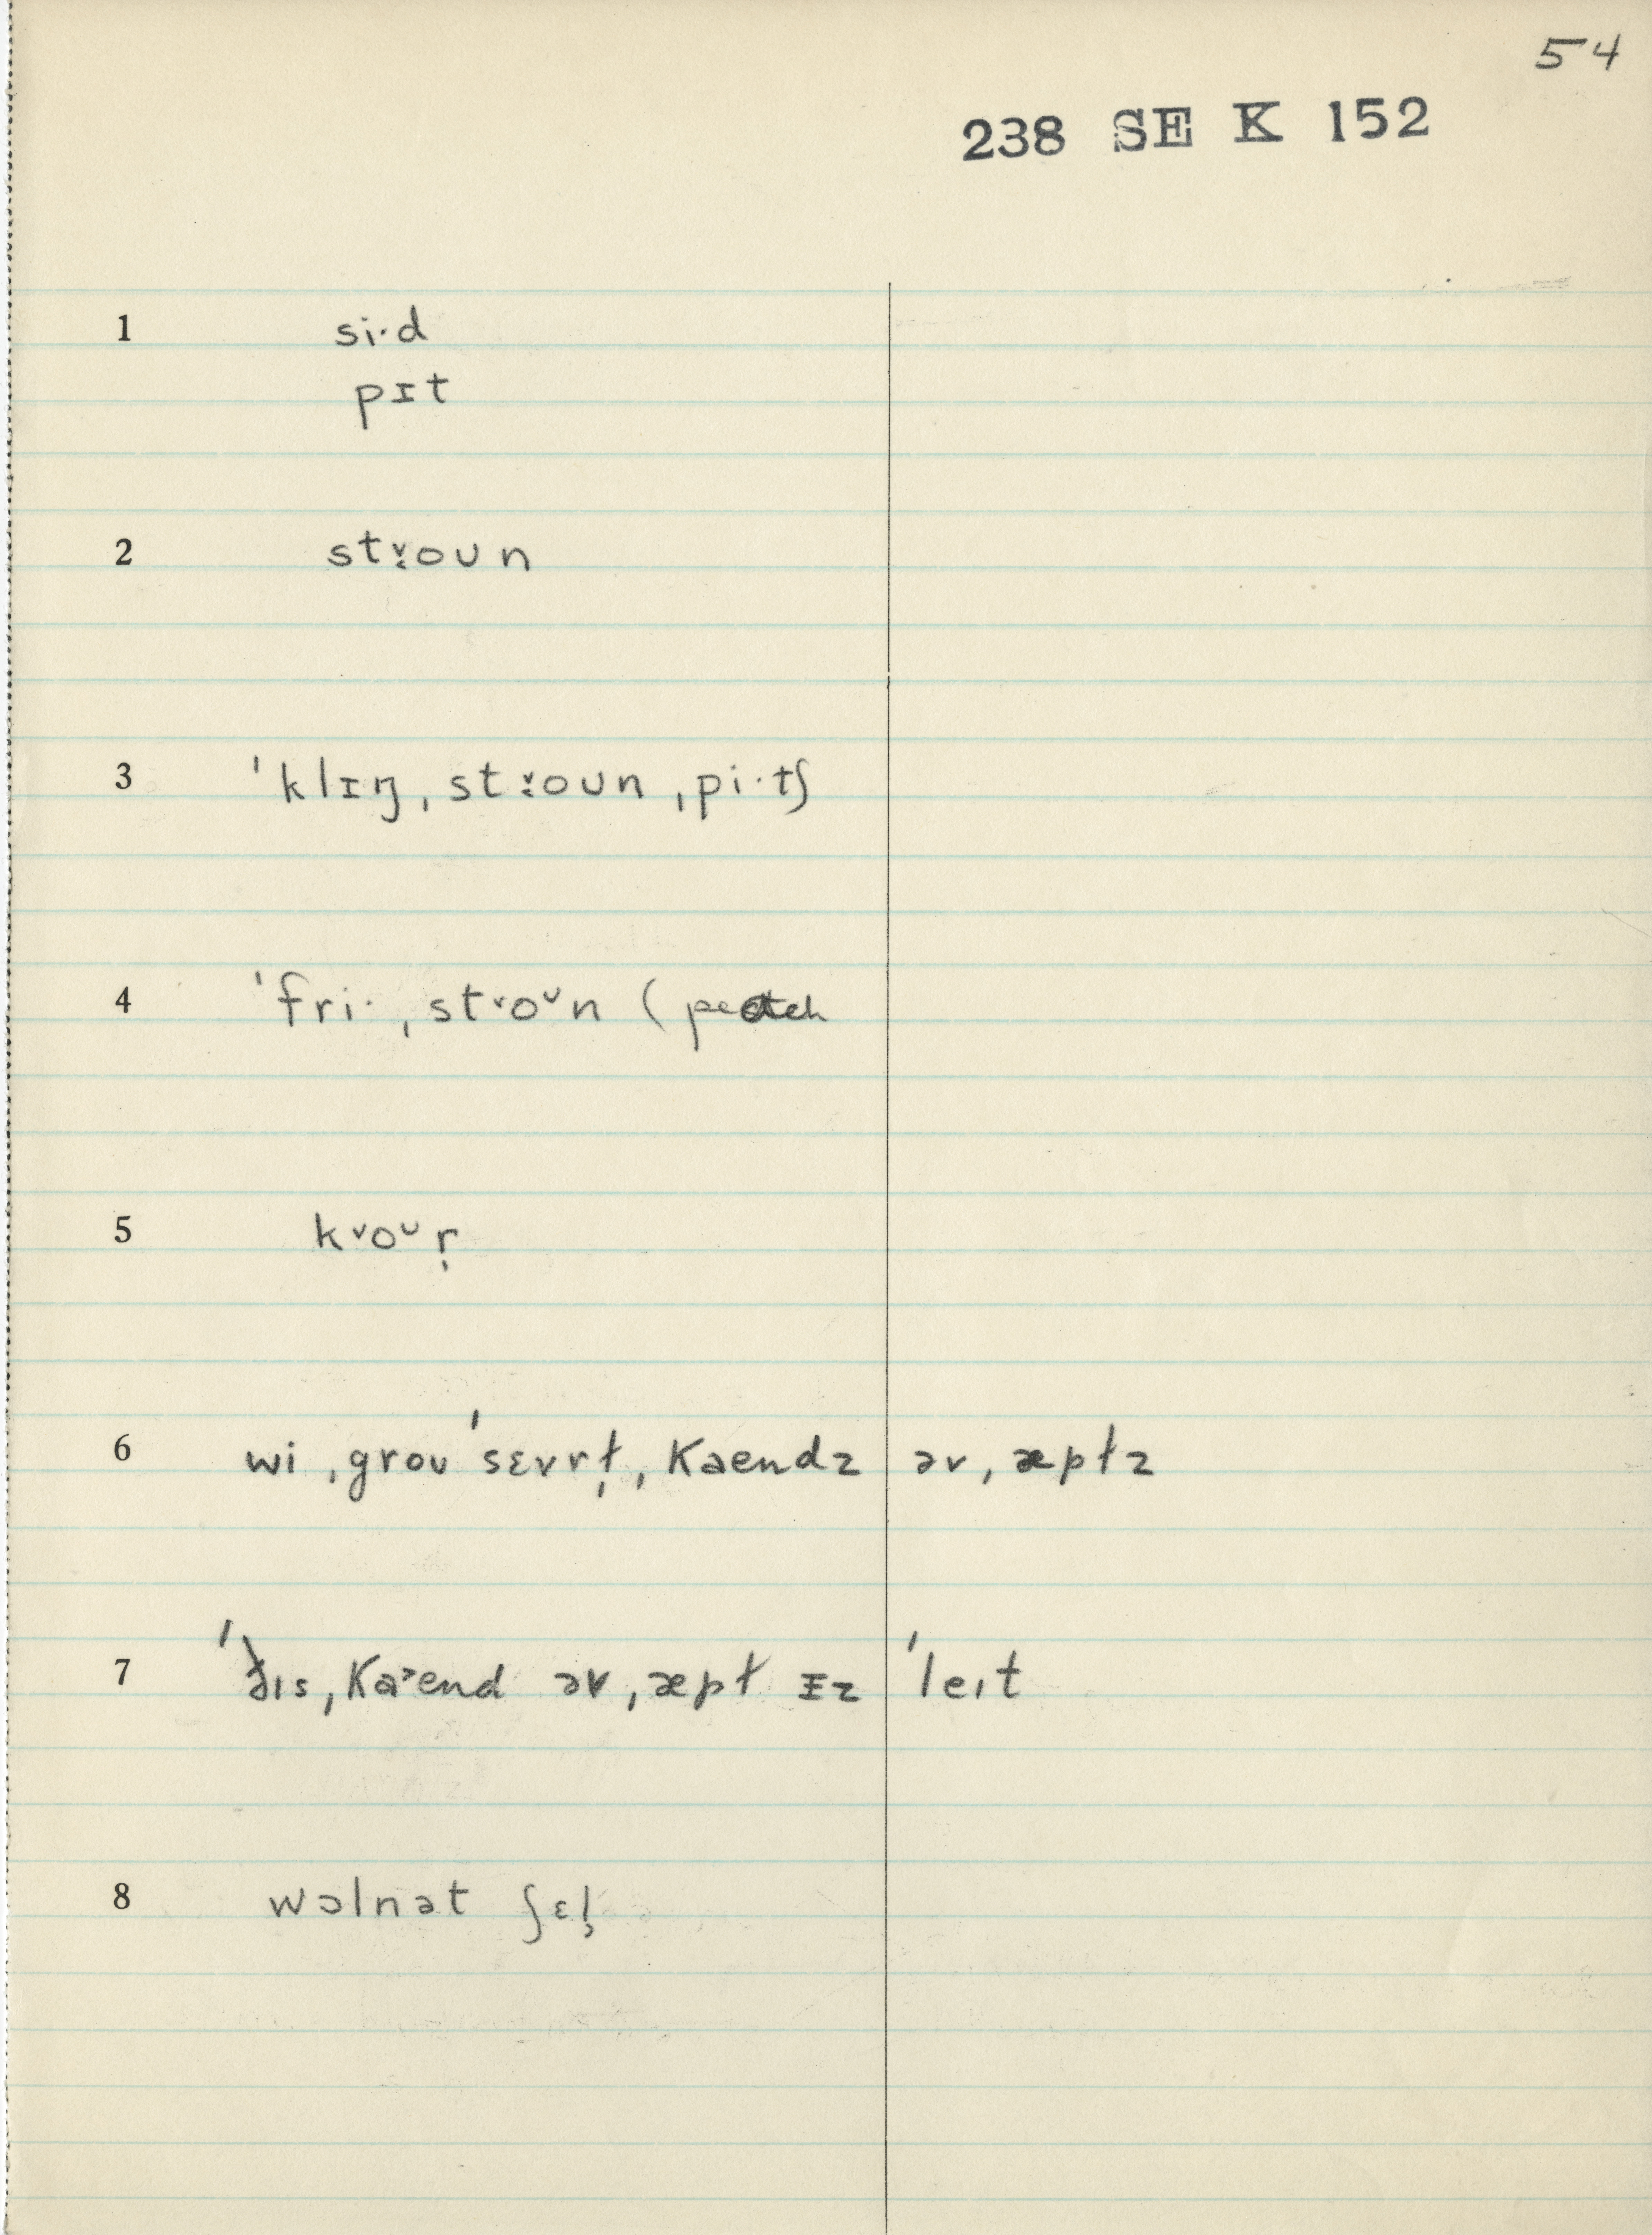 54
238 SE K 152
1 si·d
pɪt
2 stɤ̞oʊn
3 ˈklɪŋ ˌstɤ̞oʊn ˌpi·tʃ
4 ˈfri· ˌstɤoʊn (peach
5 kɤoʊr̩
6 wi ˌgroʊ ˈsɛvrɫ̩ ˌkaendz əv ˌæpɫz
7 ˈðɪs ˌka˃end əv ˌæpɫ ɪz ˈleɪt
8 wɔlnət ʃɛl̩